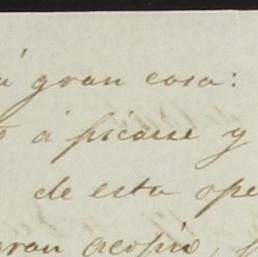 á gran cosa:
á picarse y
de esta ope
gran acopio,